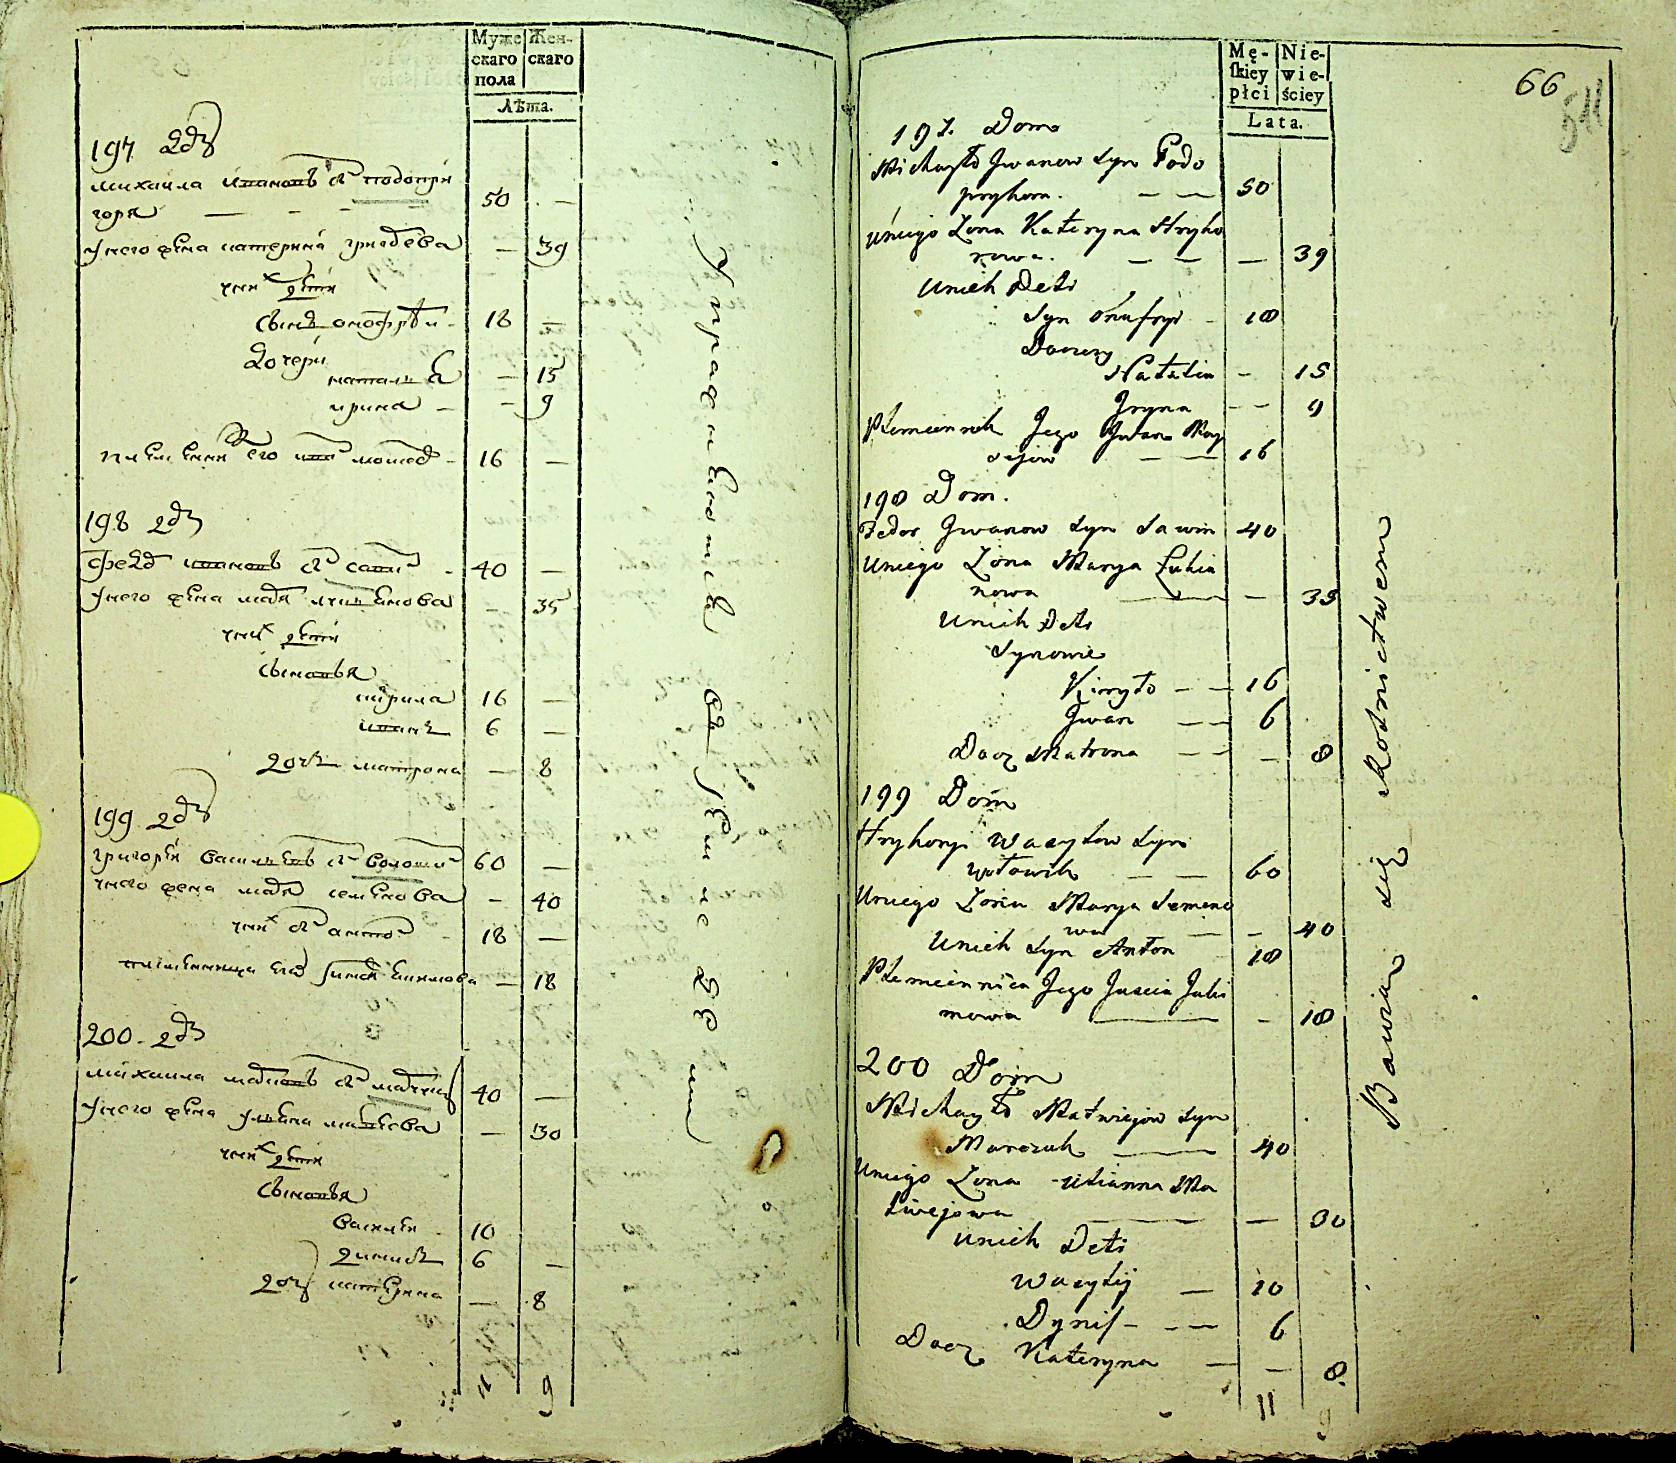 Муже
скаго
пола
Жен-
скаго
Лѣта.
197 двз
михаила иванов с подопри
горя 50 —
у него жена катерина григорева — 39
у них дети
сынъ онофрѣи 18 —
дочери
наталия — 15
ирина — 9
племенник его иван 16 —
198 двз
федор иванов с савин 40 —
у него жена маря лукиянова — 35
у них дети
сыновья
кирила 16 —
иванъ 6 —
дочь матрона — 8
199 двз
григорей василев с 60 —
у него жена маря семенова — 40
у них с антон 18 —
племенница его — 18
200 двз
михаила матвеев с 40 —
у него жена улияна матвеева — 30
у них дети
сыновья
василей 10
динисъ 6 —
дочь катерина — 8
11 9
Упражняются в земледелии
66
Mę-
skiey
płci
Nie-
wie-
ściey
Lata.
197. Dom
Michayło Jwanow syn Podo
pryhora. — — 50
Uniego Zona Kateryna Hryho
rowa. — — — 39
Unich Deti
Syn Onufryi - 18
Doczery
Natalia - 15
Jryna — 9
Plemiennik Jego Jwan Moy
sejow — — 16
198 Dom.
Fedor Jwanow syn Sawin 40
Uniego Zona Marya Łukia
nowa — — 35
Unich Deti
Synowie
Kiryło — — 16
Jwan — — 6
Docz Matrona — — — 8
199 Dom
Hryhory Wasylow syn
— — 60
Uniego Zona Marya Semeno
wa — — 40
Unich Syn Anton 18
Plemiennica Jego Juscia Juki
mowa — — 18
200 Dom
Michayło Matwiejow syn
Marczuk — 40
Uniego Zona Ulianna Ma
twiejowa — — 30
Unich Deti
Wasylij — 10
Dynis — — 6
Docz Kateryna — — 8.
11 9
Bawia się Rolnictwem